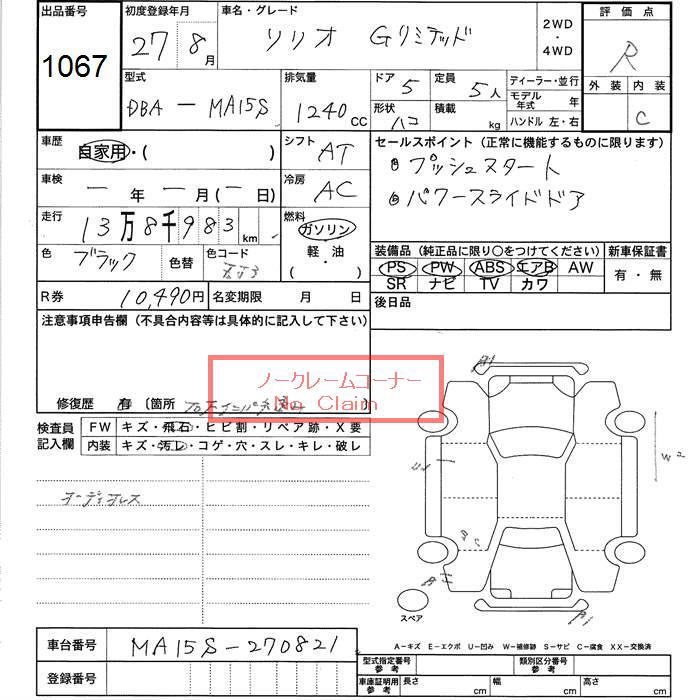 出品番号
1067
初度登録年月
27 8月
車名・グレード
ソリオ Gリミテッド
2WD
・
4WD
評価点
R
外装 内装
C
型式
DBA - MA15S
排気量
1240CC
ドア 5
定員 5人
形状 ハコ
積載 kg
ディーラー・並行
モデル年式 年
ハンドル 左・右
車歴
自家用・( )
シフト AT
車検
ー年ー月(ー日)
冷房 AC
走行
13万8千983km
燃料
ガソリン・軽・油
( )
色
ブラック
色替
色コード
ZJ3
R券 10,490円
名変期限 月 日
セールスポイント(正常に機能するものに限ります)
①プッシュスタート
②パワースライドドア
装備品(純正品に限り〇をつけてください)
PS PW ABS エアB AW
SR ナビ TV カワ
新車保証書
有・無
後日品
注意事項申告欄(不具合内容等は具体的に記入して下さい)
ノークレームコーナー
No Claim
修復歴 有 〔箇所
検査員記入欄
FW キズ・飛石・ヒビ割・リペア跡・X要
内装 キズ・汚レ・コゲ・穴・スレ・キレ・破レ
オーディオレス
W2
スペア
車台番号 MA15S-270821
登録番号
A-キズ E-エクボ U-凹み W-補修跡 S-サビ C-腐食 XX-交換済
型式指定番号 参考
類別区分番号 参考
車庫証明用 参考
長さ cm 幅 cm 高さ cm